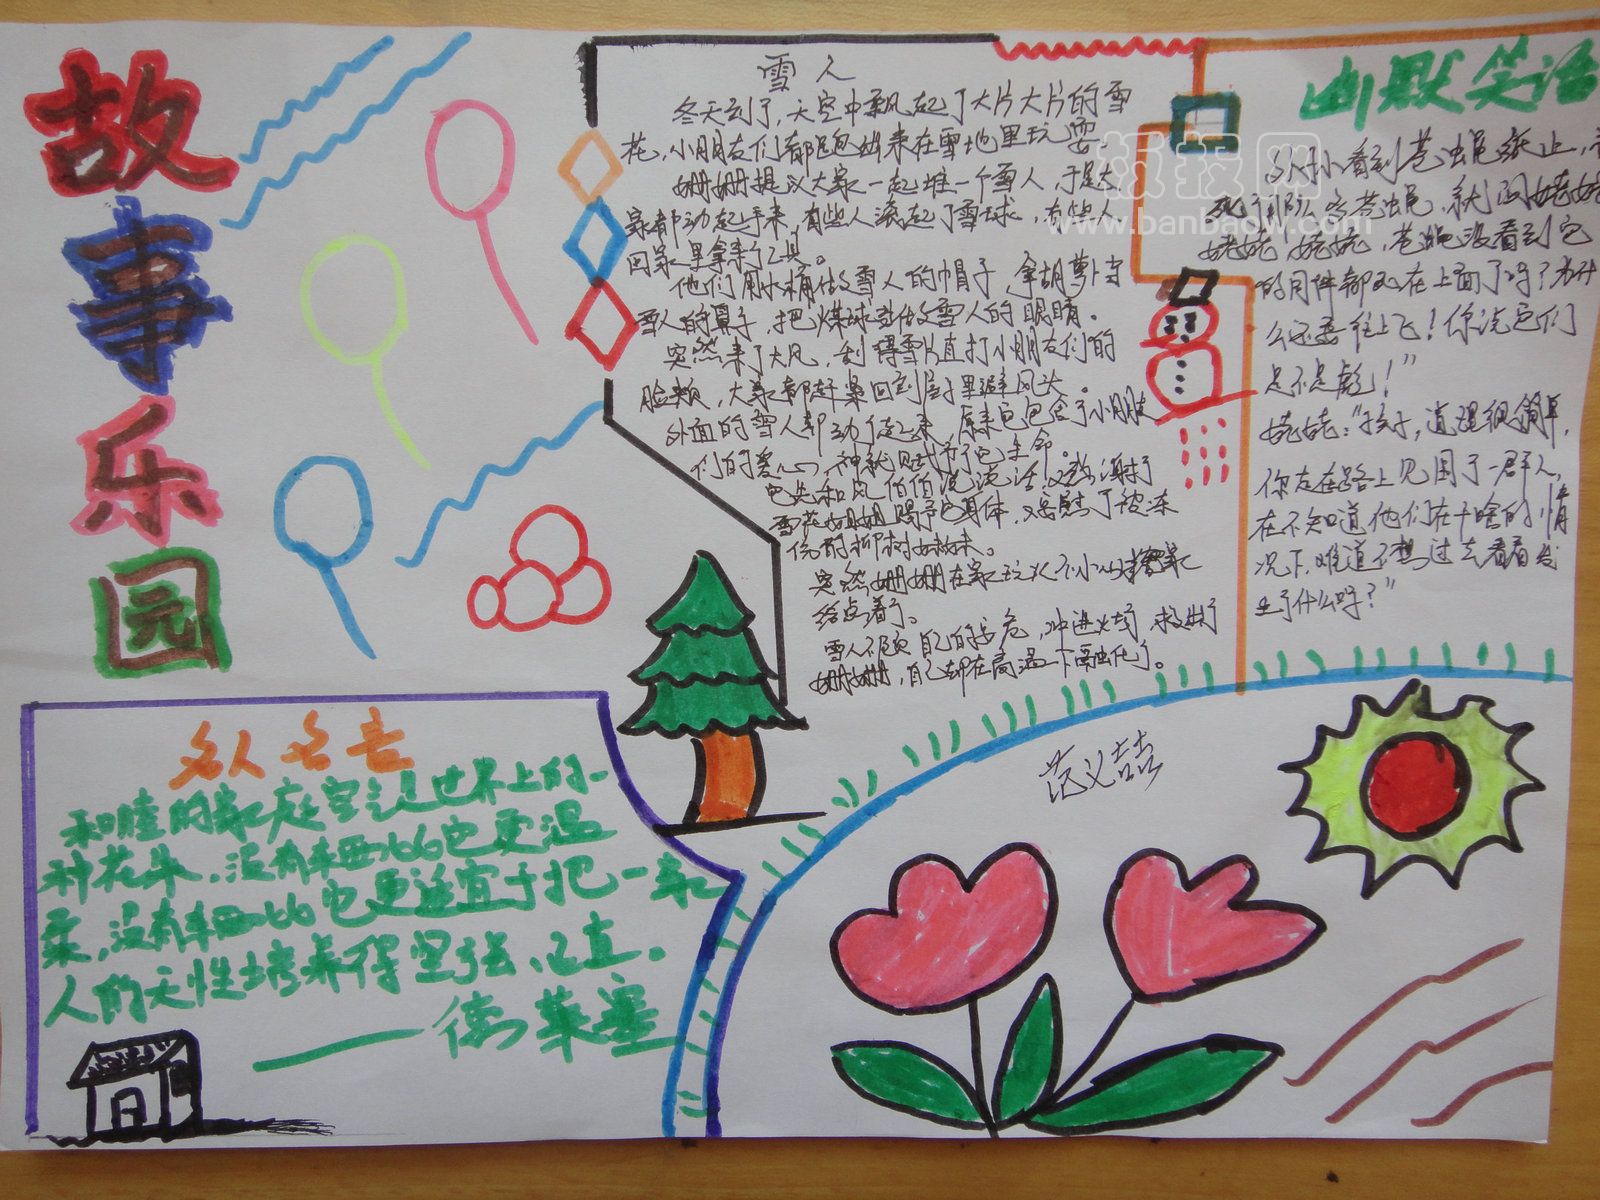 故事乐园
雪人
冬天到了,天空中飘起了大片大片的雪
花,小朋友们都跑出来在雪地里玩耍。
姗姗提议大家一起堆一个雪人,于是大
家都动起手来,有些人滚起了雪球,有些人
回家里拿来了工具。
他们用水桶做雪人的帽子,拿胡萝卜当
雪人的鼻子,把煤球当做雪人的眼睛。
突然来了大风,刮得雪片直打小朋友们的
脸颊,大家都赶紧回到房子里避风头。
外面的雪人却动了起来,原来它包含了小朋友
们的爱心,神就赋予了它生命。
它先和风伯伯说说话,又感谢了
雪花姐姐赐予它身体,又安慰了被冻
伤的柳树妹妹。
突然姗姗在家玩火不小心把家
给点着了。
雪人不顾自己的安危,冲进火场,救出了
姗姗,自己却在高温下融化了。
幽默笑话
小小看到苍蝇纸上,
死了那么多苍蝇,就问姥姥
姥姥,姥姥,苍蝇没看到它
的同伴都死在上面了吗?为什
么还要往上飞!你说它们
是不是彪!”
姥姥:“孩子,道理很简单,
你走在路上见围了一群人,
在不知道他们在干啥的情
况下,难道不想过去看看发
生了什么吗?”
名人名言
和睦的家庭空气是世界上的一
种花朵,没有东西比它更温
柔,没有东西比它更适宜于把一家
人的天性培养得坚强、正直。
——德莱塞
范义喆
板报网
www.banbaow.com